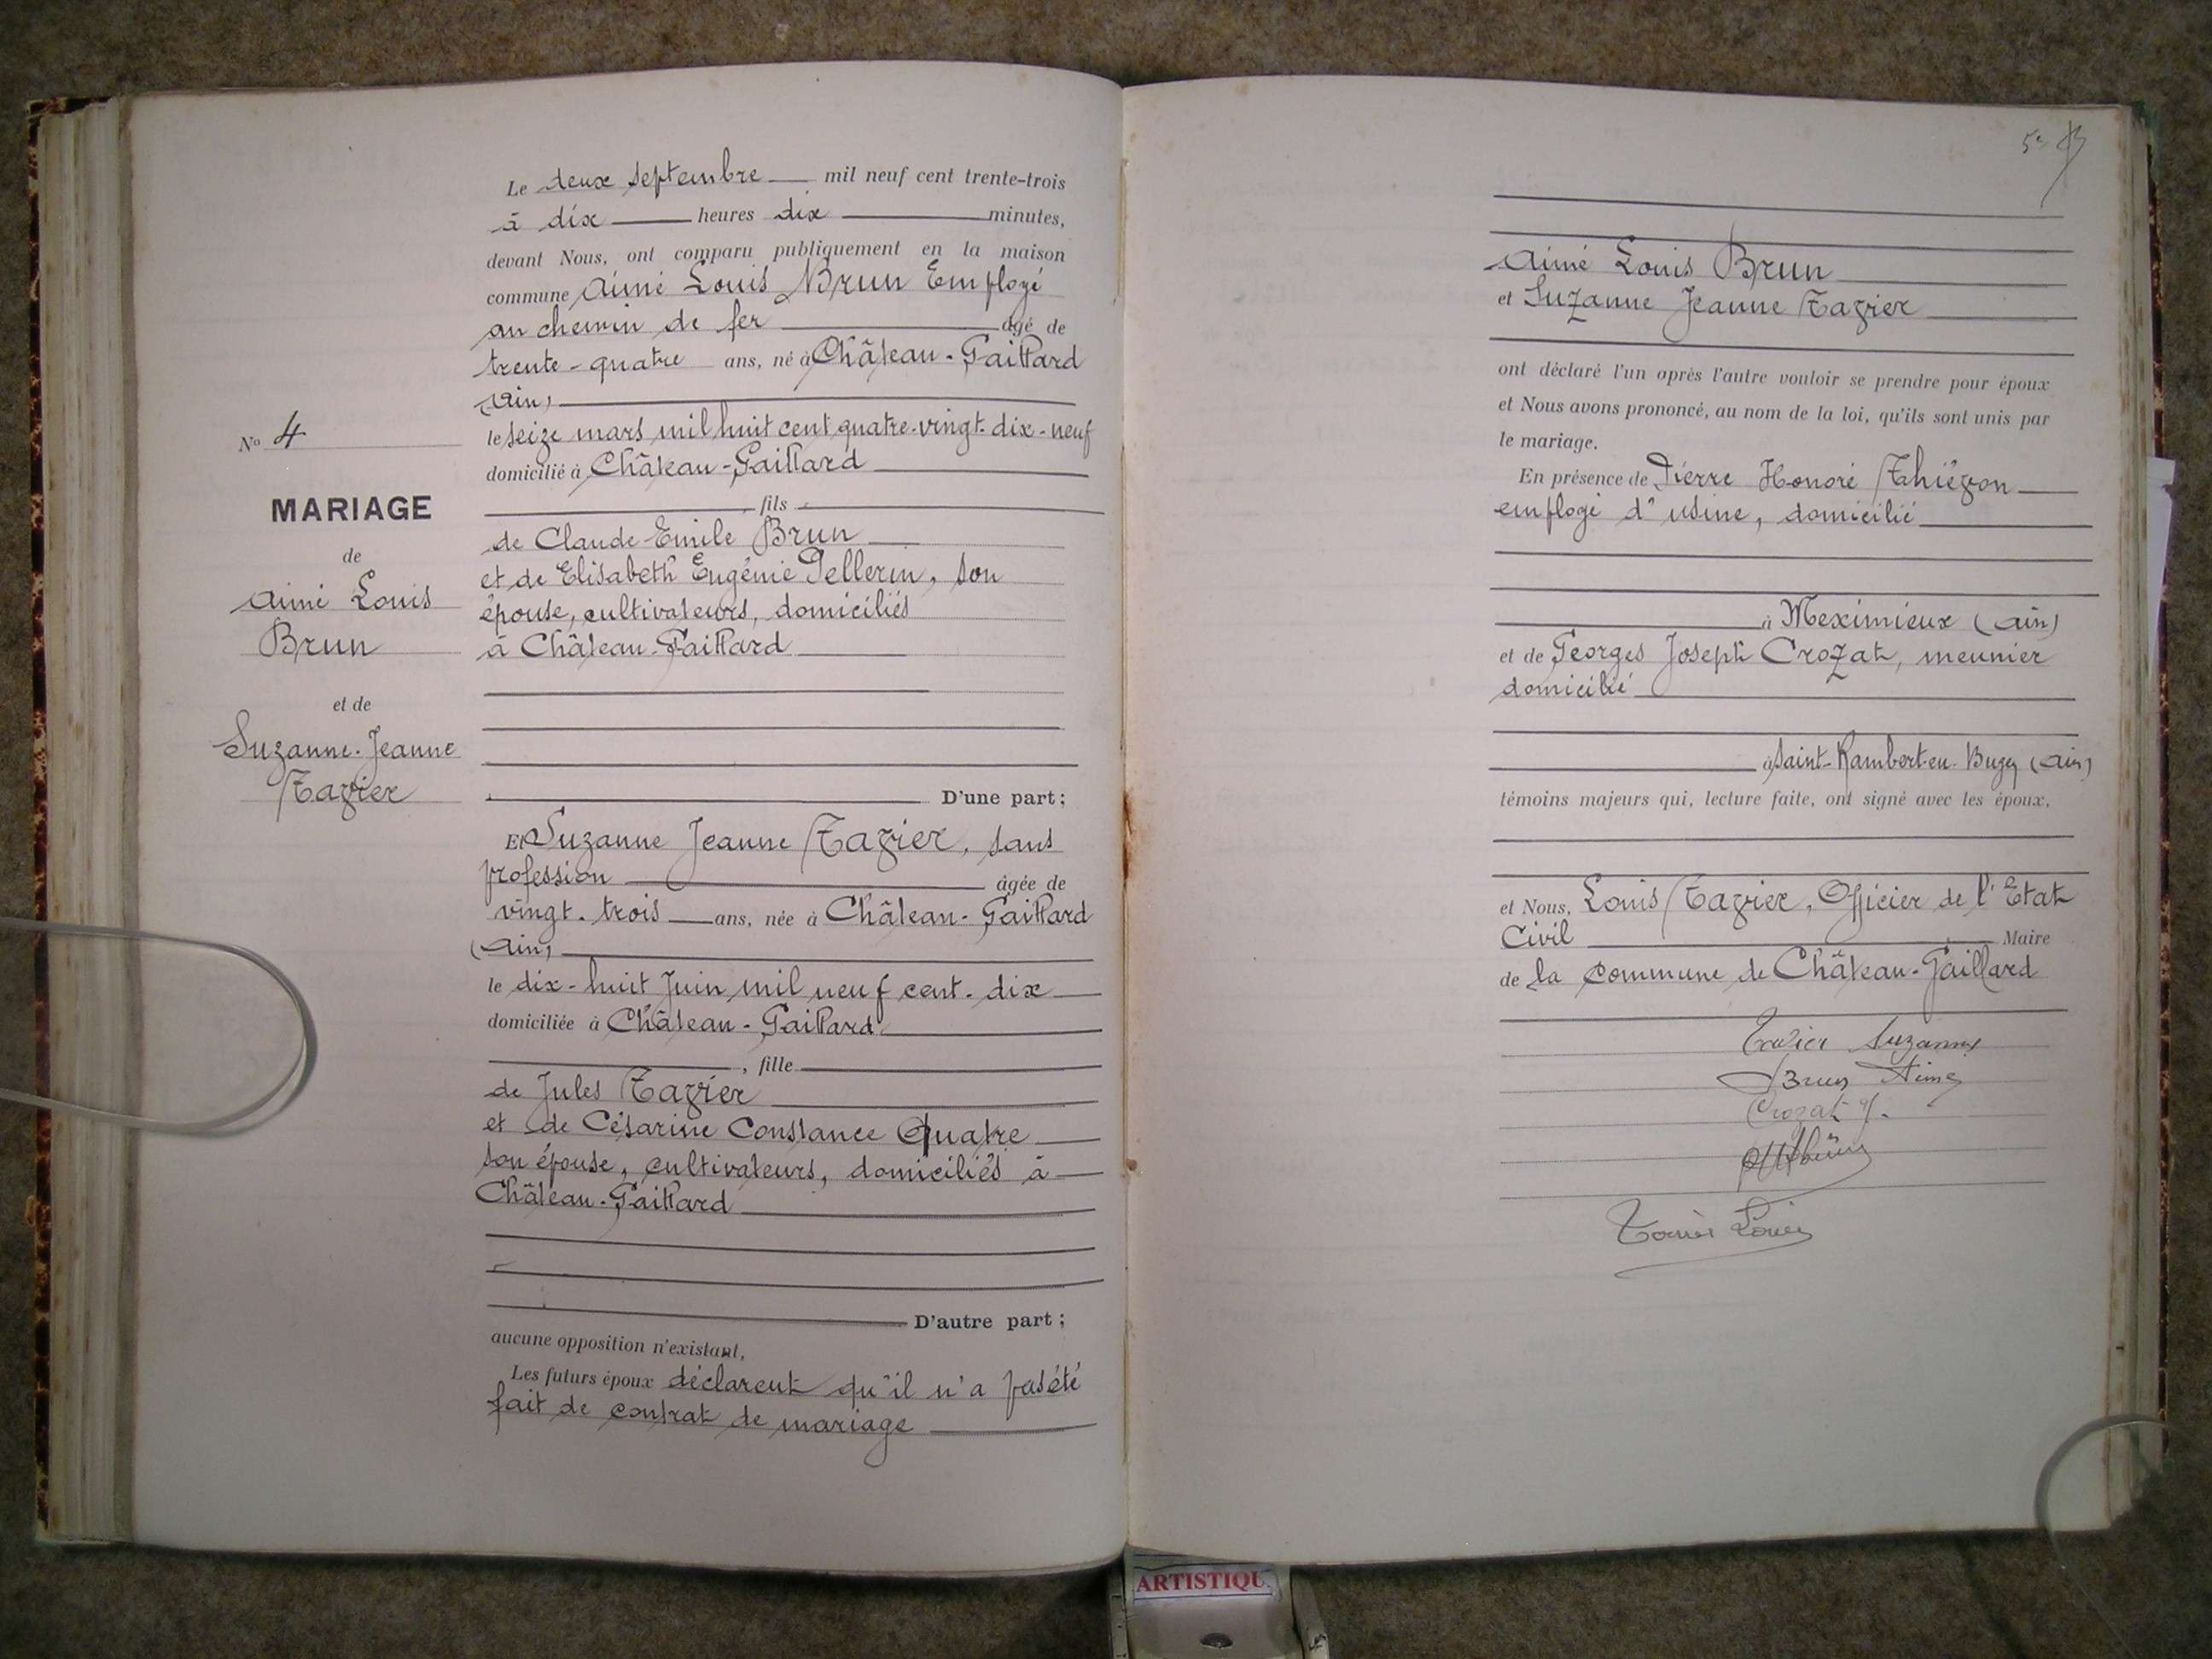 Le deux septembre mil neuf cent trente-trois
à dix heures dix minutes,
devant Nous, ont comparu publiquement en la maison
commune Aimé Louis Brun Employé
au chemin de fer âgé de
trente-quatre ans, né à Château-Gaillard
(Ain)
le seize mars mil huit cent quatre-vingt-dix-neuf
domicilié à Château-Gaillard
fils
de Claude-Emile Brun
et de Elisabeth Eugénie Pellerin, son
épouse, cultivateurs, domiciliés
à Château-Gaillard
D'une part;
No 4
MARIAGE
de
Aimé Louis
Brun
et de
Suzanne-Jeanne
Tavier
Et Suzanne Jeanne Tavier, sans
profession âgée de
vingt-trois ans, née à Château-Gaillard
(Ain)
le dix-huit Juin mil neuf cent-dix
domiciliée à Château-Gaillard
, fille
de Jules Tavier
et de Césarine Constance Quatre
son épouse, cultivateurs, domiciliés à
Château-Gaillard
D'autre part;
aucune opposition n'existant,
Les futurs époux déclarent qu'il n'a pas été
fait de contrat de mariage
Aimé Louis Brun
et Suzanne Jeanne Tavier
ont déclaré l'un après l'autre vouloir se prendre pour époux
et Nous avons prononcé, au nom de la loi, qu'ils sont unis par
le mariage.
En présence de Pierre Honoré
employé d'usine, domicilié
à Meximieux (Ain)
et de Georges Joseph Crozat, meunier
domicilié
à Saint-Rambert-en-Bugey (Ain)
témoins majeurs qui, lecture faite, ont signé avec les époux,
et Nous, Louis Tavier, Officier de l'Etat
Civil Maire
de la commune de Château-Gaillard
Tavier Suzanne
Brun Aimé
Crozat J.
Tavier Louis
ARTISTIQU